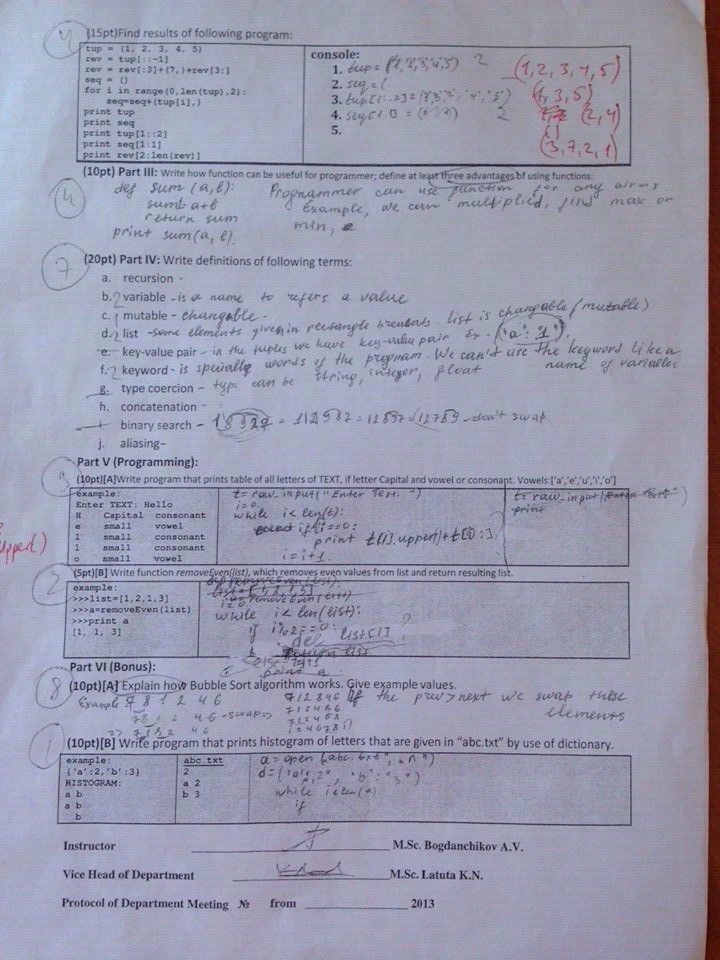 4 (15pt)Find results of following program:
tup = (1, 2, 3, 4, 5)
rev = tup[::-1]
rev = rev[:3]+(7,)+rev[3:]
seq = ()
for i in range(0,len(tup),2):
seq=seq+(tup[i],)
print tup
print seq
print tup[1::2]
print seq[1:1]
print rev[2:len(rev)]
console:
1. tup = (1,2,3,4,5) 2
2. seq = (
3. tup[1::2] =
4. seq[1:1] = 2
5.
(1,2,3,4,5)
(1,3,5)
(2,4)
()
(3,7,2,1)
(10pt) Part III: Write how function can be useful for programmer; define at least three advantages of using functions:
4
def sum (a,b): Programmer can use function for any aims
sum = a+b Example, we can multiplied, find max or
return sum min,
print sum(a, b).
7 (20pt) Part IV: Write definitions of following terms:
a. recursion -
b. 2 variable - is a name to refers a value
c. 1 mutable - changable -
d. 2 list - some elements given in rectangle List is changable (mutable)
e. key-value pair - in the tuples we have key-value pair Ex. ("a": "1"),
f. 2 keyword - is specially words of the program. We can't use the keyword like a name of variables
g. type coercion - type can be string, integer, float
h. concatenation -
i. binary search - - don't swap
j. aliasing–
Part V (Programming):
3 (10pt)[A]Write program that prints table of all letters of TEXT, if letter Capital and vowel or consonant. Vowels:['a','e','u','i','o']
example:
Enter TEXT: Hello
H Capital consonant
e small vowel
l small consonant
l small consonant
o small vowel
t = raw_input("Enter Text: ")
i=0
while i<len(t):
if i==0:
print t[i].upper()+t[0:]
i=i+1
t=raw_input(
print
upper()
2 (5pt)[B] Write function removeEven(list), which removes even values from list and return resulting list.
example:
>>>list=[1,2,1,3]
>>>a=removeEven(list)
>>>print a
[1, 1, 3]
def removeEven(list):
list=[1,2,1,3]
a=removeEven(list)
while i<len(list):
if i%2==0:
del list[i]
return list
print a
?
Part VI (Bonus):
8 (10pt)[A] Explain how Bubble Sort algorithm works. Give example values.
Example 7 8 1 2 4 6 712846 If the prev > next we swap these
elements
- swap =>
1 (10pt)[B] Write program that prints histogram of letters that are given in "abc.txt" by use of dictionary.
example:
{'a':2,'b':3}
HISTOGRAM:
a b
a b
b
abc.txt
2
a 2
b 3
a = open("abc.txt", "r")
d=("a":"2", "b":"3")
while i<len(a)
if
Instructor M.Sc. Bogdanchikov A.V.
Vice Head of Department M.Sc. Latuta K.N.
Protocol of Department Meeting № from 2013